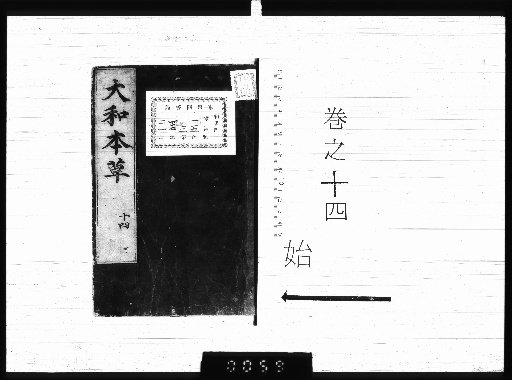 大和本草
十四
巻之十四
始
0059